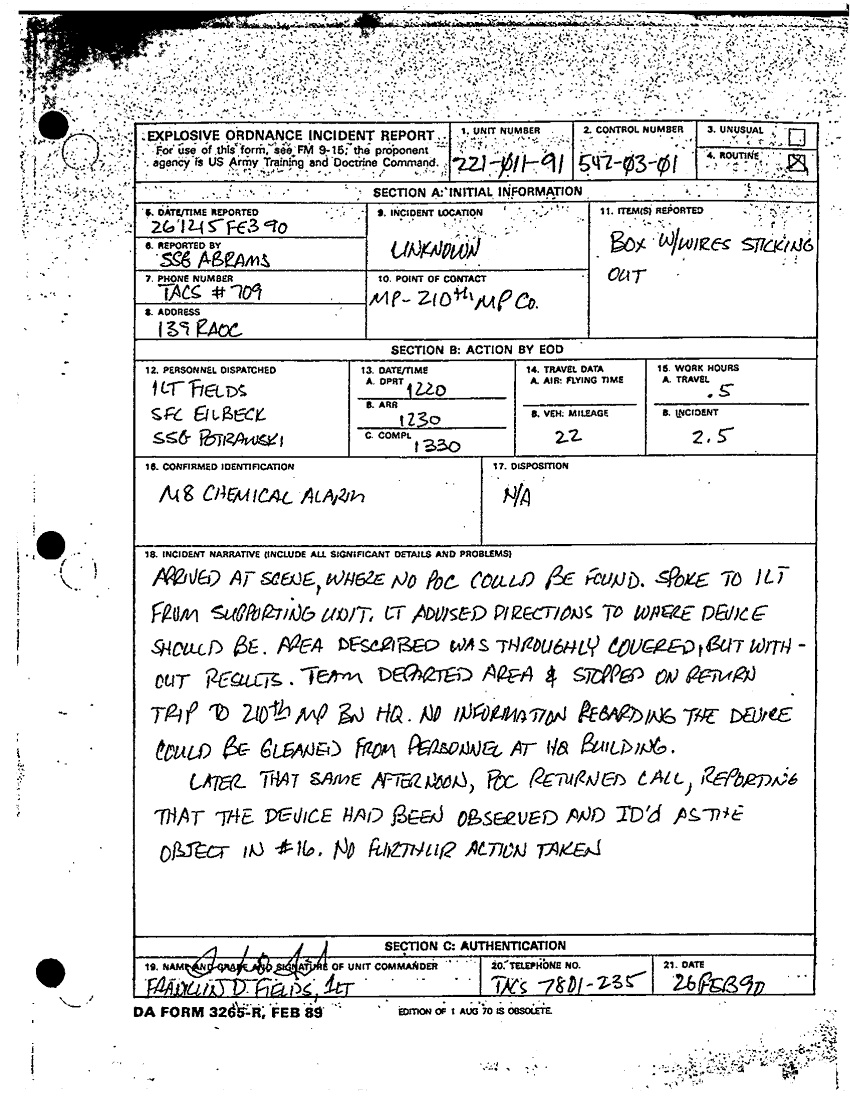 EXPLOSIVE ORDNANCE INCIDENT REPORT
For use of this form, see FM 9-15; the proponent
agency is US Army Training and Doctrine Command.
1. UNIT NUMBER
221-Ø11-91
2. CONTROL NUMBER
542-Ø3-Ø1
3. UNUSUAL
4. ROUTINE
SECTION A: INITIAL INFORMATION
5. DATE/TIME REPORTED
261215 FEB 90
6. REPORTED BY
SSG ABRAMS
7. PHONE NUMBER
TACS # 709
8. ADDRESS
139 RAOC
9. INCIDENT LOCATION
UNKNOWN
10. POINT OF CONTACT
MP- 210th MP Co.
11. ITEM(S) REPORTED
BOX W/WIRES STICKING
OUT
SECTION B: ACTION BY EOD
12. PERSONNEL DISPATCHED
1LT FIELDS
SFC EILBECK
SSG POTRAWSKI
13. DATE/TIME
A. DPRT 1220
B. ARR 1230
C. COMPL 1330
14. TRAVEL DATA
A. AIR: FLYING TIME
B. VEH: MILEAGE
22
15. WORK HOURS
A. TRAVEL
.5
B. INCIDENT
2.5
16. CONFIRMED IDENTIFICATION
M8 CHEMICAL ALARM
17. DISPOSITION
N/A
18. INCIDENT NARRATIVE (INCLUDE ALL SIGNIFICANT DETAILS AND PROBLEMS)
ARRIVED AT SCENE, WHERE NO POC COULD BE FOUND. SPOKE TO 1LT
FROM SUPPORTING UNIT. LT ADVISED DIRECTIONS TO WHERE DEVICE
SHOULD BE. AREA DESCRIBED WAS THROUGHLY COVERED, BUT WITH-
OUT RESULTS. TEAM DEPARTED AREA & STOPPED ON RETURN
TRIP TO 210th MP BN HQ. NO INFORMATION REGARDING THE DEVICE
COULD BE GLEANED FROM PERSONNEL AT HQ BUILDING.
LATER THAT SAME AFTERNOON, POC RETURNED CALL, REPORTING
THAT THE DEVICE HAD BEEN OBSERVED AND ID'd AS THE
OBJECT IN #16. NO FURTHUR ACTION TAKEN
SECTION C: AUTHENTICATION
19. NAME AND GRADE AND SIGNATURE OF UNIT COMMANDER
FRANKLIN D. FIELDS, 1LT
20. TELEPHONE NO.
TACS 7801-235
21. DATE
26FEB90
DA FORM 3265-R, FEB 89
EDITION OF 1 AUG 70 IS OBSOLETE.